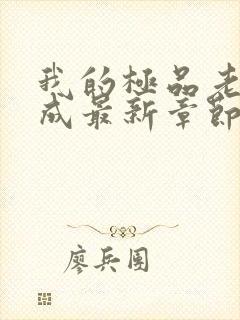 我的極品老
成最新章節
廖兵團